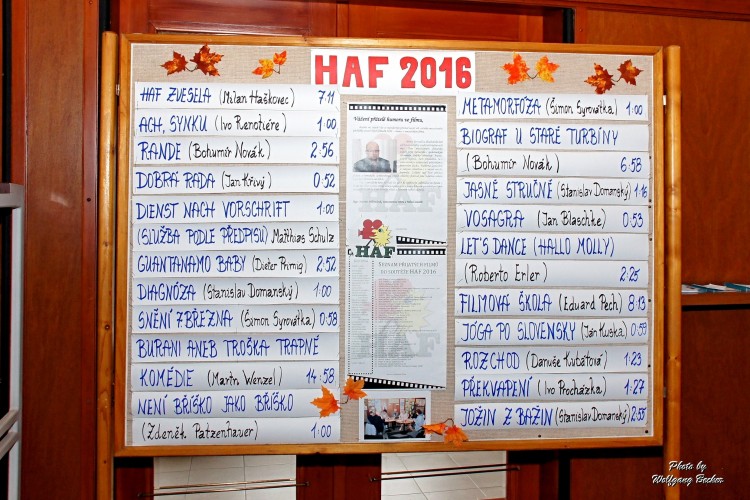 HAF 2016
HAF ZVESELA (Milan Haškovec) 7:11
ACH, SYNKU (Ivo Renotiére) 1:00
RANDE (Bohumír Novák) 2:56
DOBRÁ RADA (Jan Křivý) 0:52
DIENST NACH VORSCHRIFT 1:00
(SLUŽBA PODLE PŘEDPISU) Matthias Schulz
GUANTANAMO BABY (Dieter Primig) 2:52
DIAGNÓZA (Stanislav Domanský) 1:00
SNĚNÍ 7BŘEZNA (Šimon Syrovátka) 0:58
BURANI ANEB TROŠKA TRAPNÉ
KOMÉDIE (Martin Wenzel) 14:58
NENÍ BŘÍŠKO JAKO BŘÍŠKO
(Zdeněk Patzenhauer) 1:00
Vážení přátelé humoru ve filmu,
HAF
SEZNAM PŘIJATÝCH FILMŮ
DO SOUTĚŽE HAF 2016
HAF
METAMORFÓZA (Šimon Syrovátka) 1:00
BIOGRAF U STARÉ TURBÍNY
(Bohumír Novák) 6:58
JASNĚ STRUČNĚ (Stanislav Domanský) 1:16
VOSAGRA (Jan Blaschke) 0:53
LET'S DANCE (HALLO MOLLY)
(Roberto Erler) 2:25
FILMOVÁ ŠKOLA (Eduard Pech) 8:13
JÓGA PO SLOVENSKY (Ján Kuska) 0:59
ROZCHOD (Danuše Kubátová) 1:23
PŘEKVAPENÍ (Ivo Procházka) 1:27
JOŽIN Z BAŽIN (Stanislav Domanský) 2:55
Photo by
Wolfgang Becker